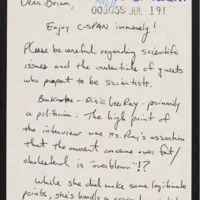 Dear Brian,
003655 JUL 19 1
Enjoy C-SPAN immensely!
Please be careful regarding scientific
issues and the credentials of guests
who purport to be scientists.
- Dixie Lee Ray - primarily
a politician. The high point of
the interview was Ms. Ray's assertion
that the current concern over fat/
cholesterol is "overblown"!?
While she did make some legitimate
points, she's hardly a